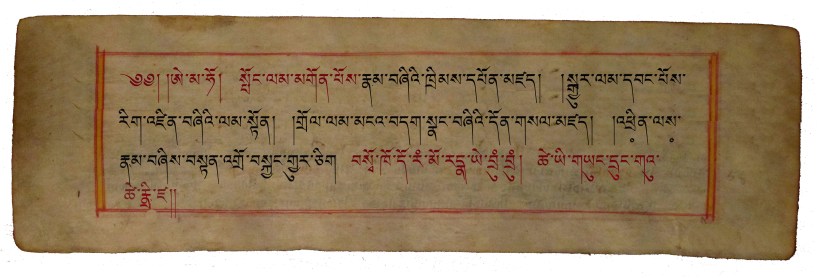 ༄༅། །ཨེ་མ་ཧོ། སྤོང་ལམ་མགོན་པོས་རྣམ་བཞིའི་ཁྲིམས་དཔོན་མཛད། །སྒྱུར་ལམ་དབང་པོས་
རིག་འཛིན་བཞིའི་ལམ་སྟོན། །གྲོལ་ལམ་མངའ་བདག་སྣང་བཞིའི་དོན་གསལ་མཛད། །འཕྲིན་ལས་
རྣམ་བཞིས་བསྟན་འགྲོ་བསྐྱང་གྱུར་ཅིག བསྭོ་ཁོ་དོ་ཇི་མོ་རཏྣ་ཡེ་བྷྲུཾ་བྷྲུཾ། ཚེ་ཡི་གཡུང་དྲུང་གའུ་
ཚེ་སྟྲི་ཛ།།